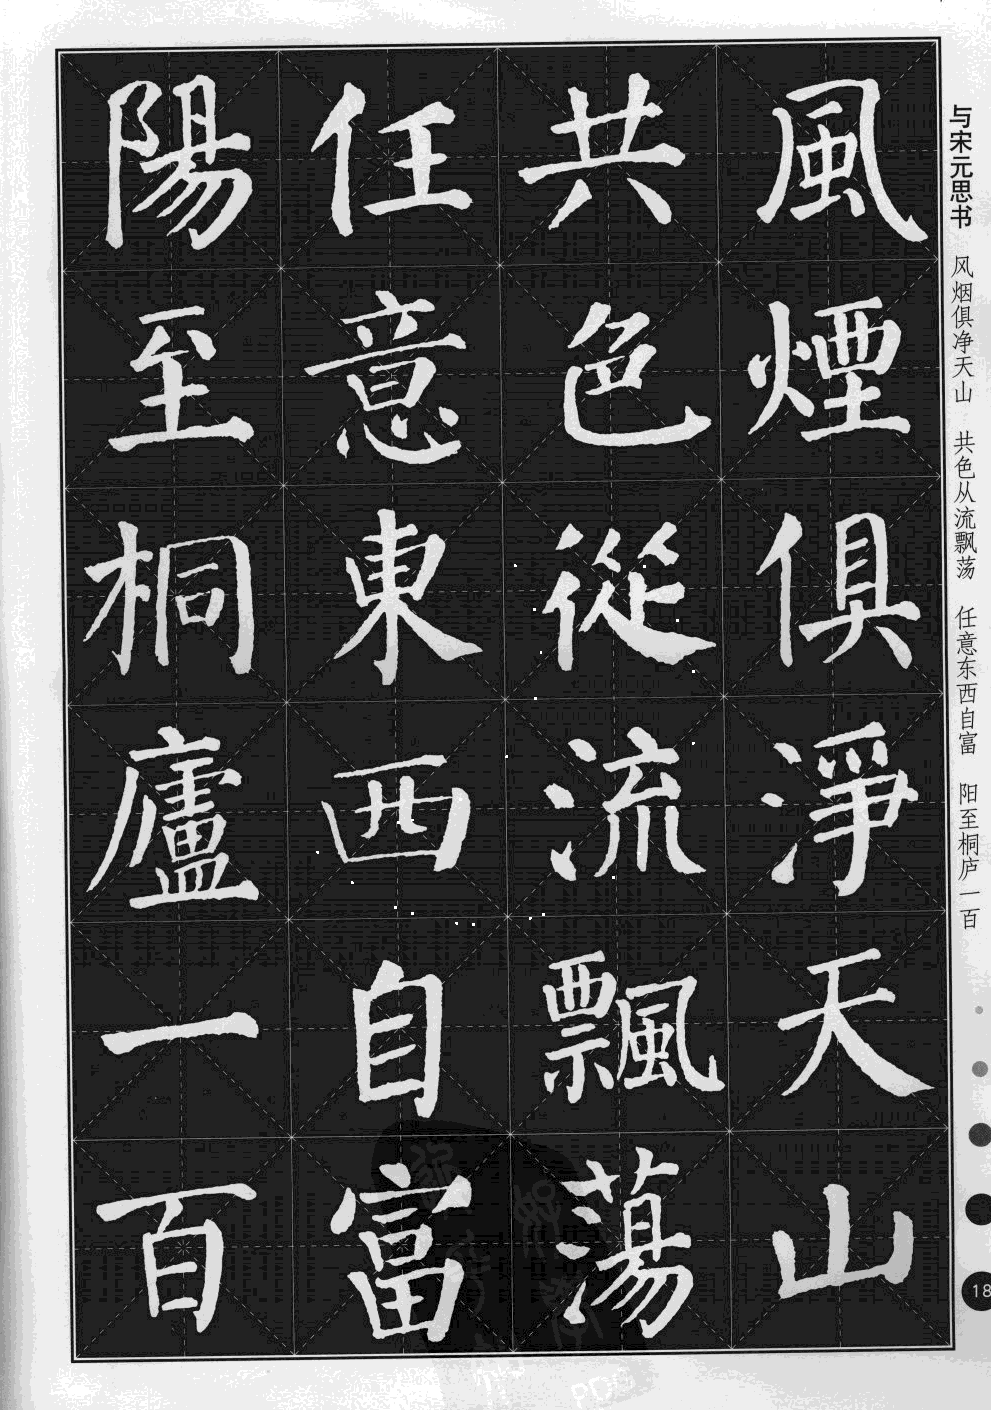 風煙俱淨天山
共色從流飄蕩
任意東西自富
陽至桐廬一百
与宋元思书 风烟俱净天山 共色从流飘荡 任意东西自富 阳至桐庐一百
18